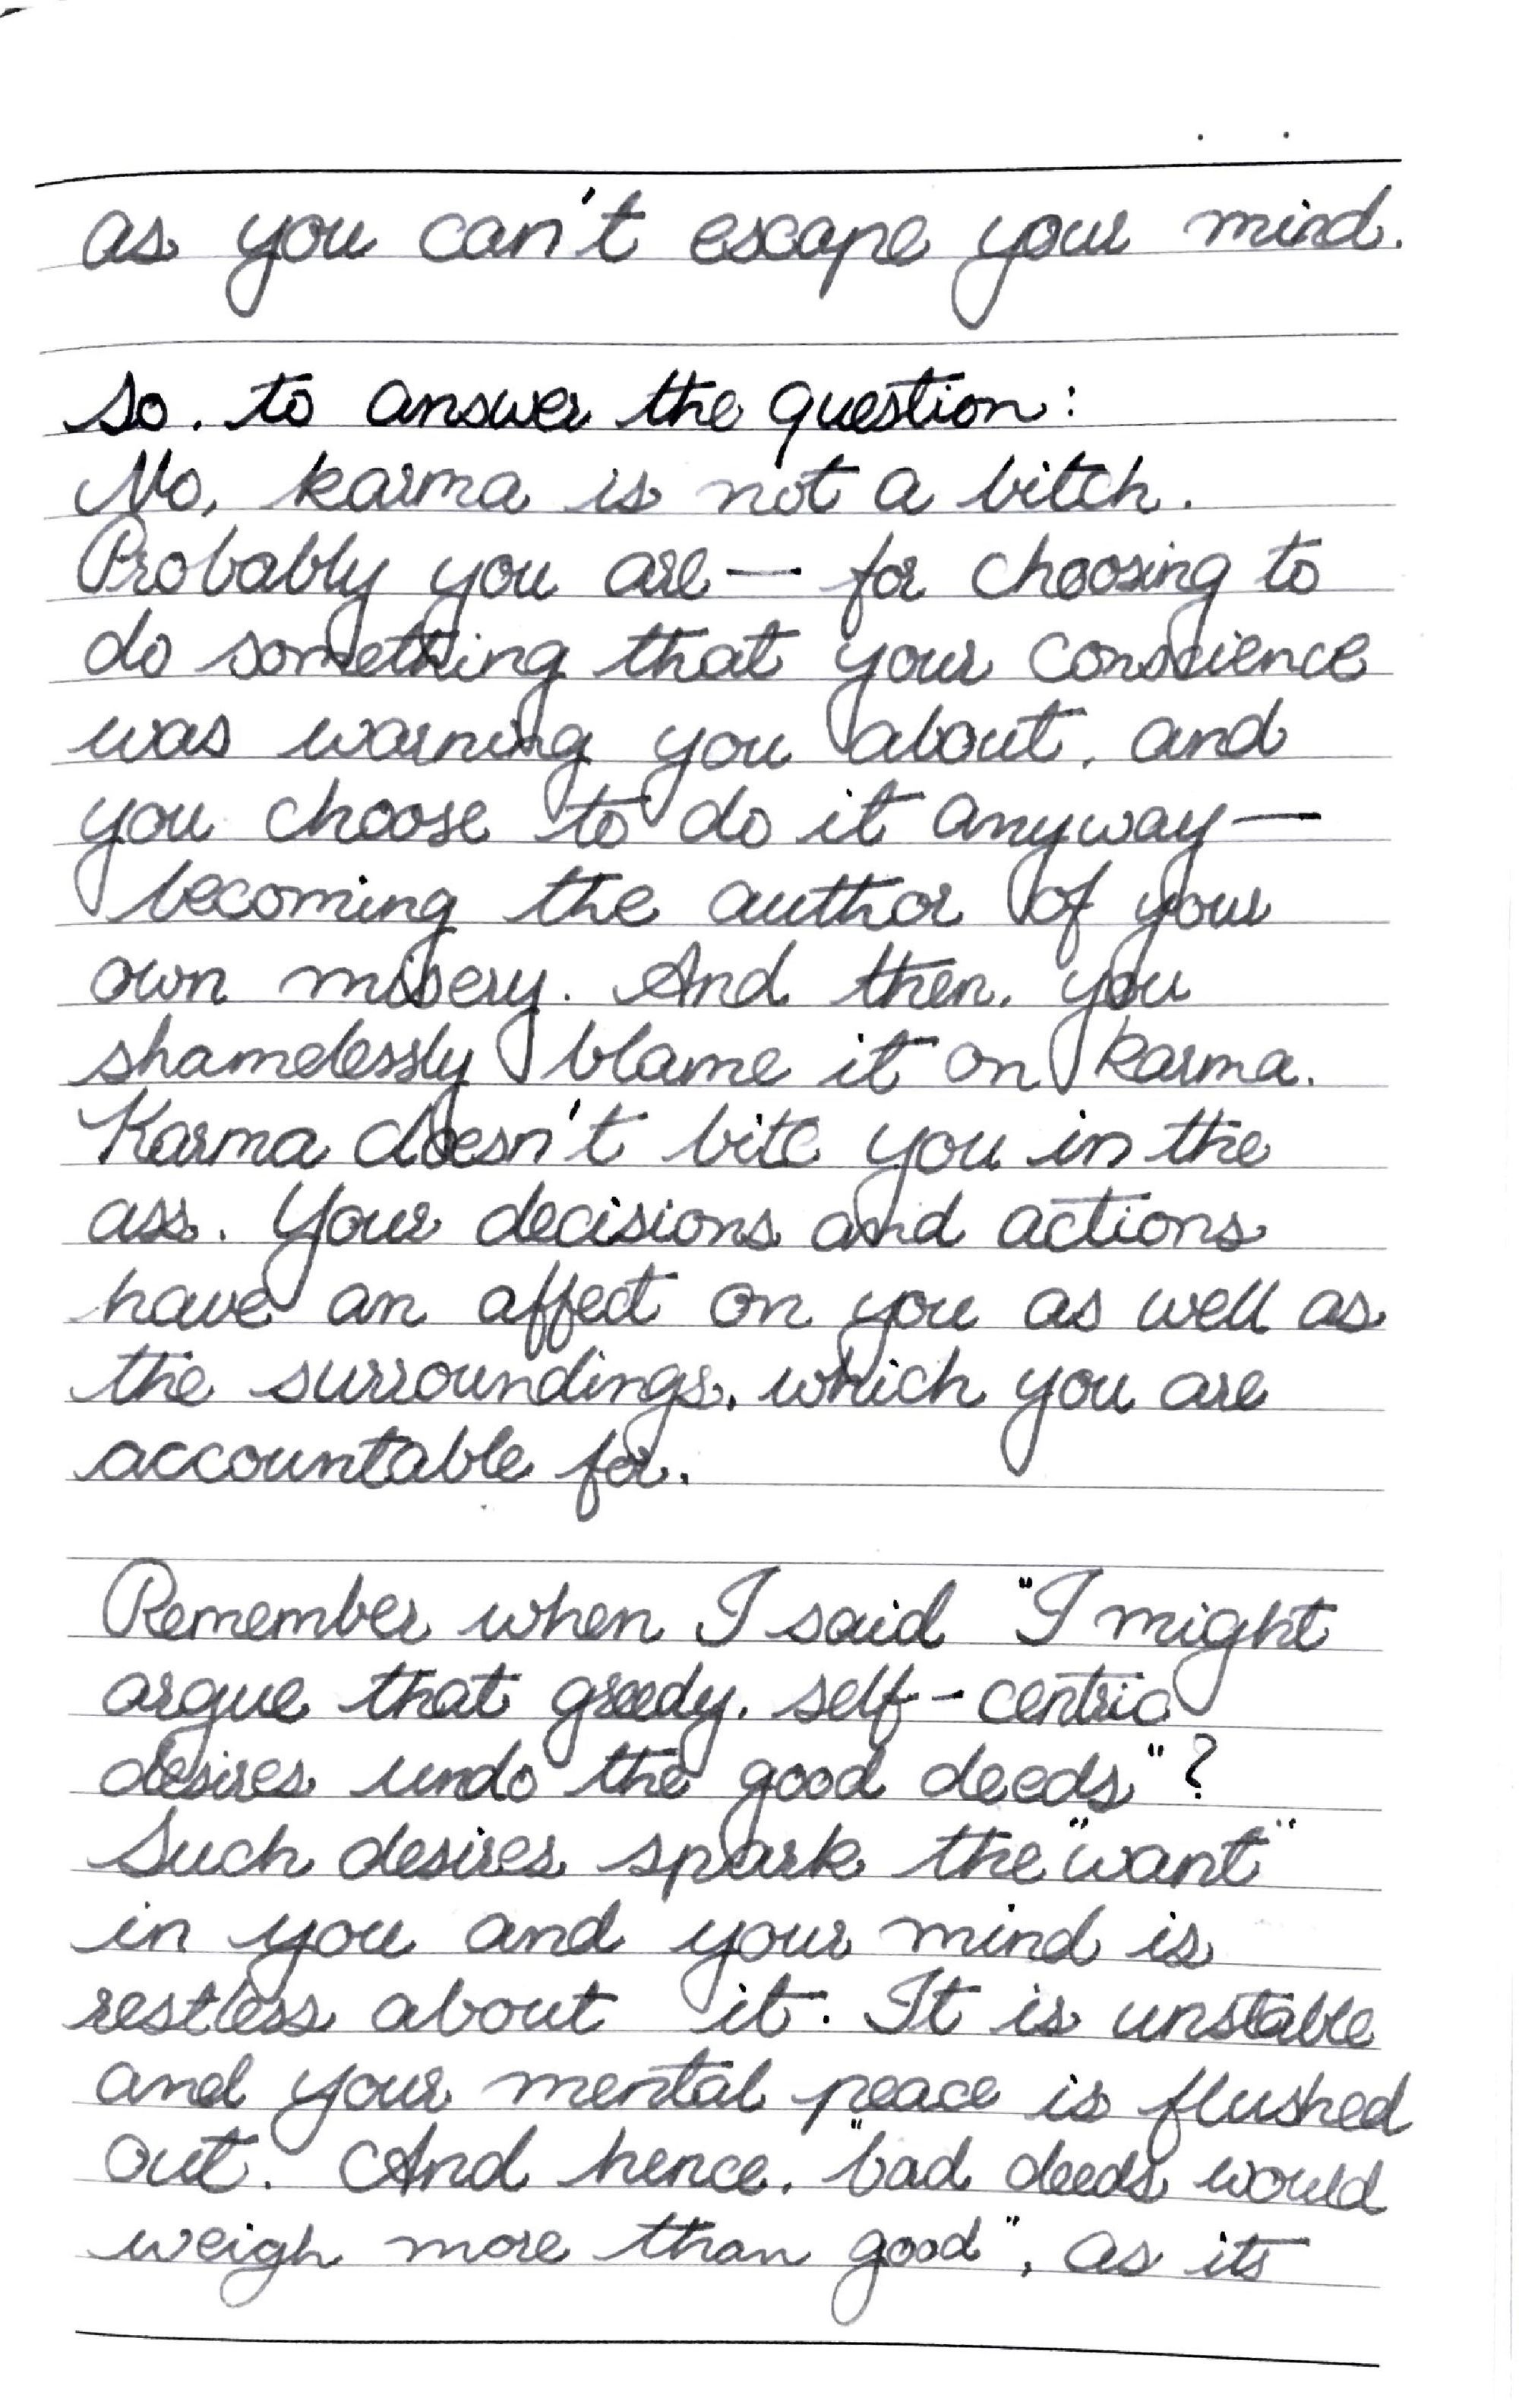 as you can't escape your mind.
So, to answer the question:
No, karma is not a bitch.
Probably you are — for choosing to
do something that your conscience
was warning you about, and
you choose to do it anyway —
becoming the author of your
own misery. And then, you
shamelessly blame it on karma.
Karma doesn't bite you in the
ass. Your decisions and actions
have an affect on you as well as
the surroundings, which you are
accountable for.
Remember when I said "I might
argue that greedy, self-centric
desires undo the good deeds"?
Such desires spark the "want"
in you and your mind is
restless about it. It is unstable
and your mental peace is flushed
out. And hence, "bad deeds would
weigh more than good", as its